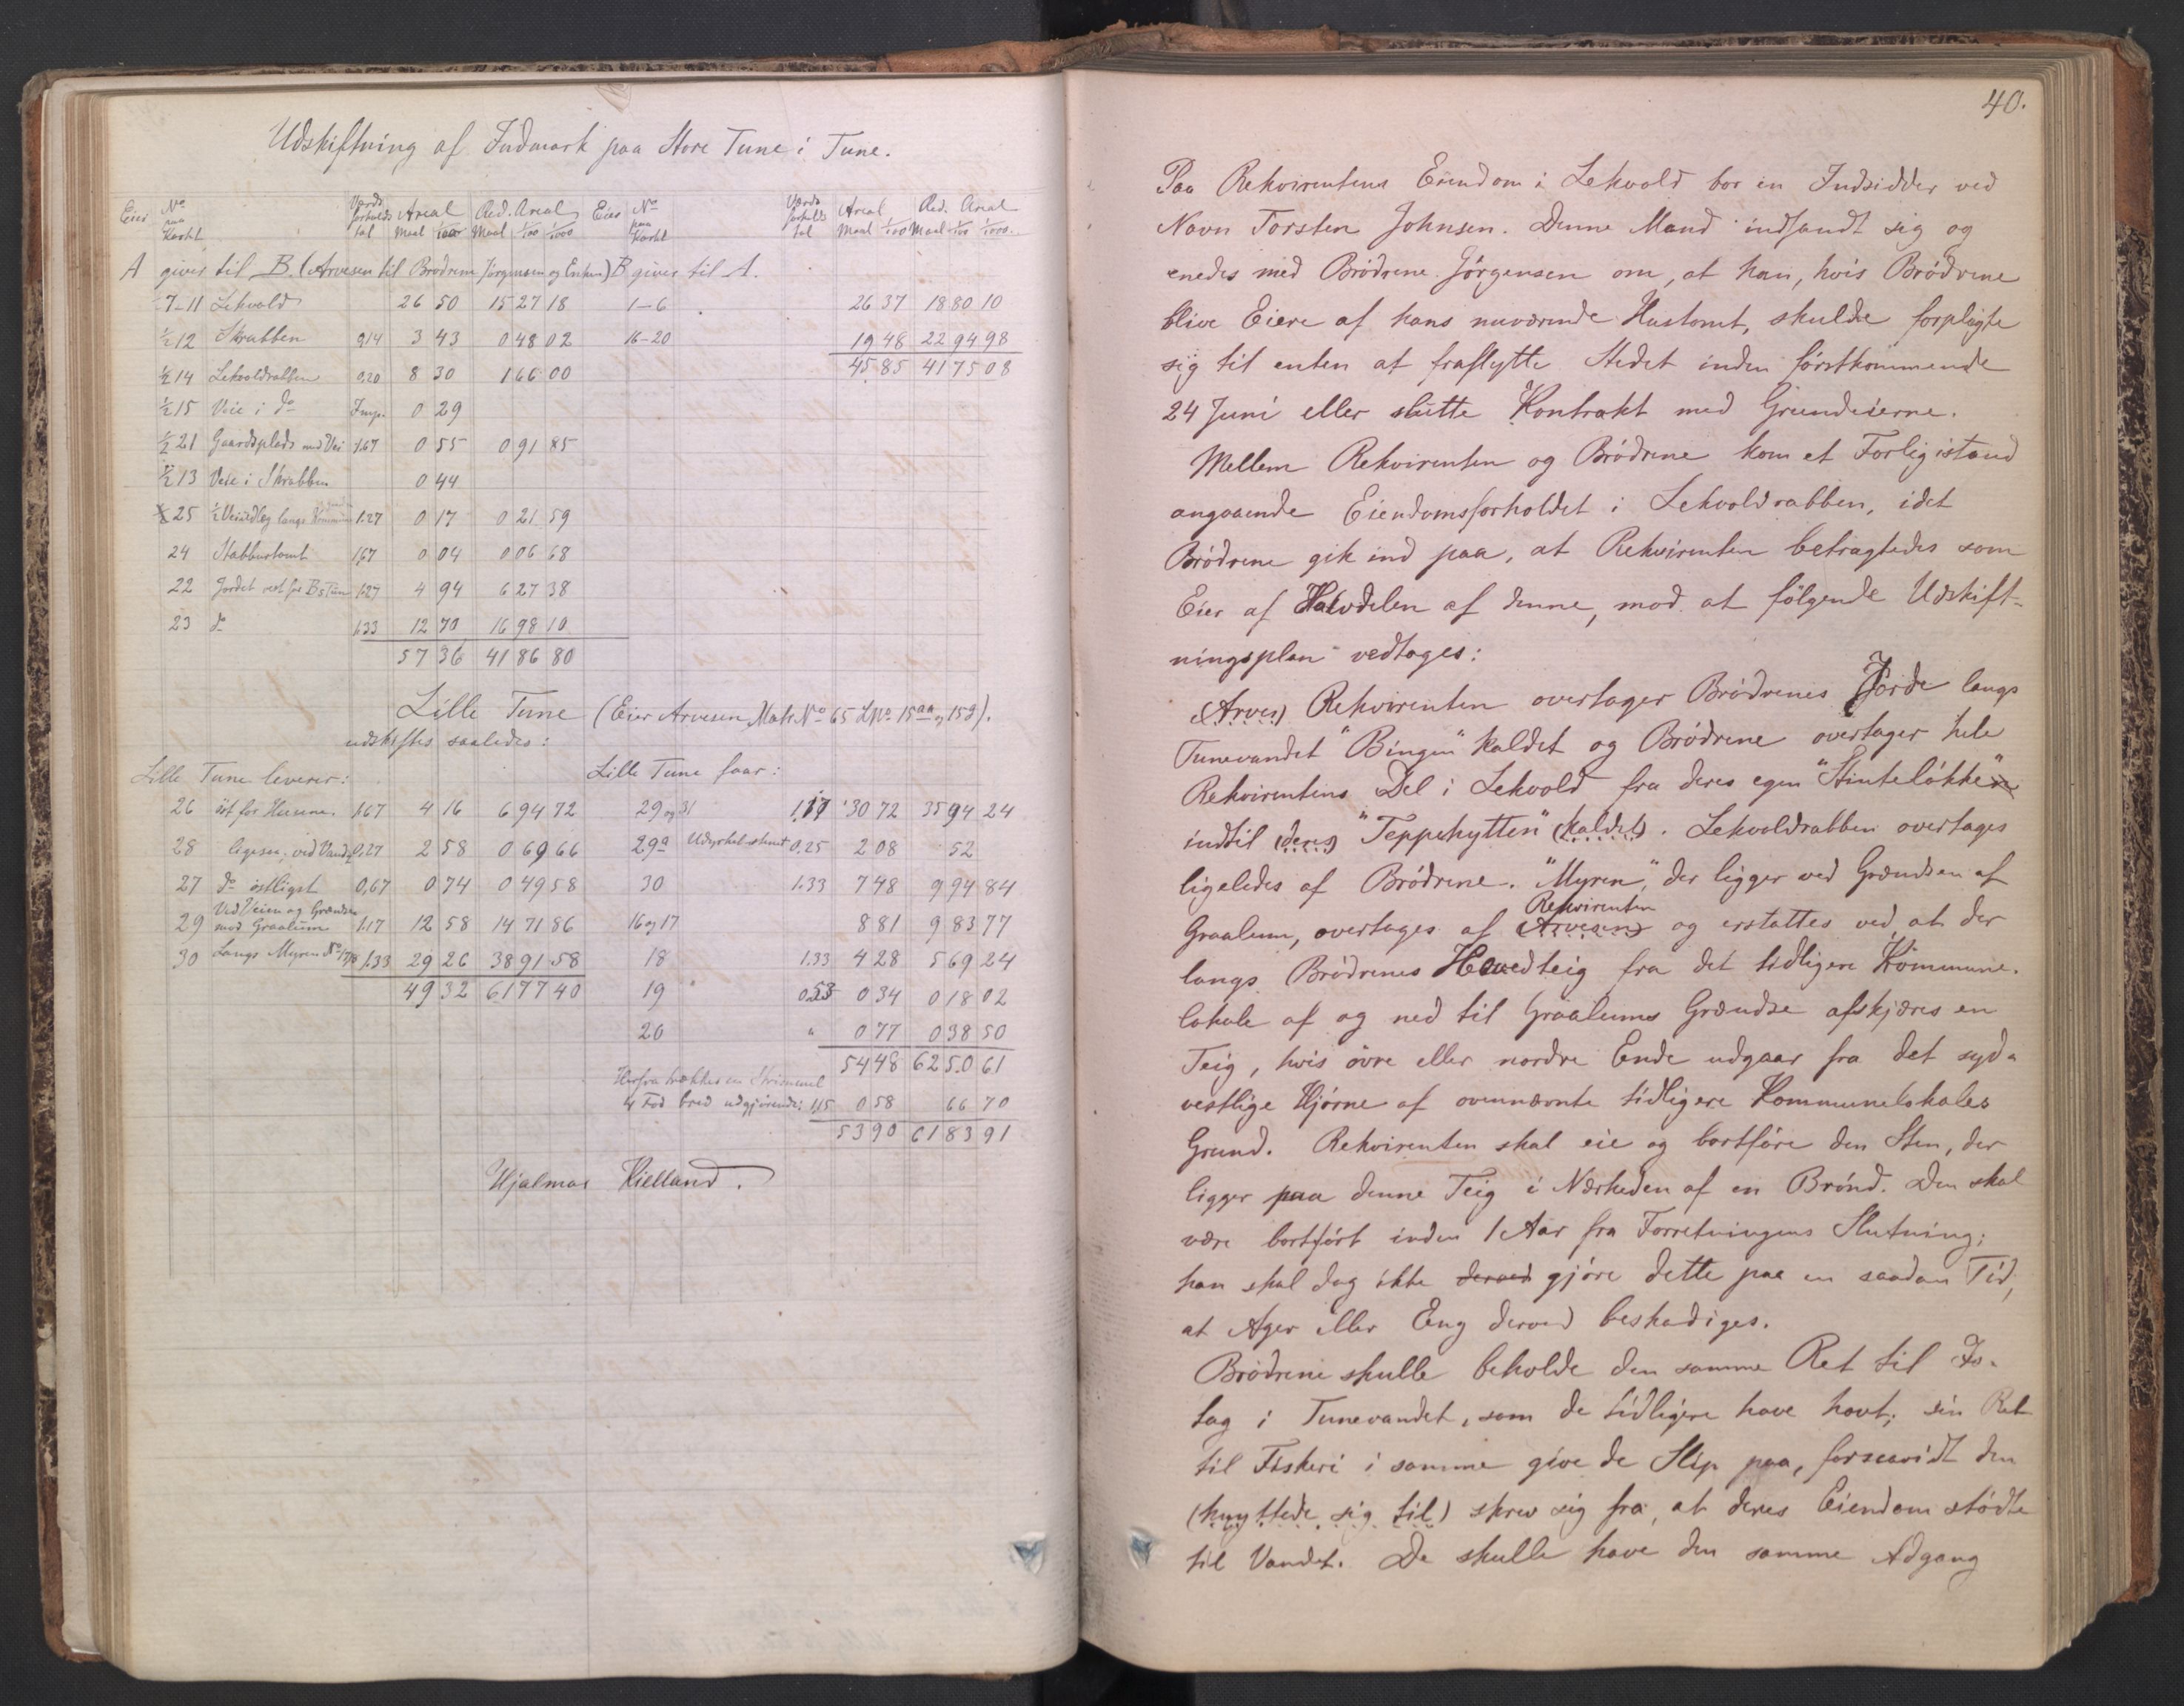 Udskiftning af Indmark paa Store Tune i Tune.
Eier No paa Kartet Værdiforholdstal Areal Maal 1/100 Red. Areal Maal 1/100 1/1000 Eier No paa Kartet Værdiforholdstal Areal Maal 1/100 Red. Areal Maal 1/100 1/1000
A giver til B. (Arvesen til Brødrene Jørgensen og Enken) B giver til A.
7-11 Lekvold 26 50 15 27 18 1-6 26 37 18 80 10
1/2 12 Skrabben 0,14 3 43 0 48 02 16-20 19 48 22 94 98
1/2 14 Lekvoldrabben 0,20 8 30 1 66 00 45 85 41 75 08
1/2 15 Veie i do Imp. 0 29
1/2 21 Gaardsplads med Vei 1,67 0 55 0 91 85
1/2 13 Veie i Skrabben 0 44
25 1/2 langs 1.27 0 17 0 21 59
24 Stabburtomt 1,67 0 04 0 06 68
22 Jordet vest for Bs Tun 1.27 4 94 6 27 38
23 do 1.33 12 70 16 98 10
57 36 41 86 80
Lille Tune (Eier Arvesen, Matr No 65 LNo 15aa og 15g).
udskiftes saaledes:
Lille Tune leverer: Lille Tune faar:
26 øst for Husene 1.67 4 16 6 94 72 29 og 31 1.17 30 72 35 94 24
28 ligesaa, ved Vandet 0,27 2 58 0 69 66 29a 0.25 2 08 52
27 do østligst 0,67 0 74 0 49 58 30 1.33 7 48 9 94 84
29 Ved Veien og Grændsen mod Graalum 1.17 12 58 14 71 86 16 og 17 8 81 9 83 77
30 Langs Myren No 17/8 1.33 29 26 38 91 58 18 1.33 4 28 5 69 24
49 32 61 77 40 19 0.53 0 34 0 18 02
20 " 0 77 0 38 50
54 48 62 50 61
Herfra trækkes en Strimmel
4 Fod bred udgjørende: 1,15 0 58 66 70
53 90 61 83 91
Hjalmar Kielland.
40.
Paa Rekvirentens Eiendom i Lekvold bor en Indsidder ved
Navn Torsten Johnsen. Denne Mand indfandt sig og
enedes med Brødrene Jørgensen om, at han, hvis Brødrene
blive Eiere af hans nuværende Hustomt, skulde forpligte
sig til enten at fraflytte Stedet inden førstkommende
24 Juni eller slutte Kontrakt med Grundeierne.
Mellem Rekvirenten og Brødrene kom et Forlig istand
angaaende Eiendomsforholdet i Lekvoldrabben, idet
Brødrene gik ind paa, at Rekvirenten betragtedes som
Eier af Halvdelen af denne, mod at følgende Udskift-
ningsplan vedtages:
(Arves) Rekvirenten overtager Brødrenes Jorde langs
Tunevandet "Bingen" kaldet og Brødrene overtager hele
Rekvirentens Del i Lekvold fra deres egen "Stinteløkken"
indtil (deres) "Teppehytten" (kaldet). Lekvoldrabben overtages
ligeledes af Brødrene. "Myren", der ligger ved Grændsen af
Rekvirenten
Graalum, overtages af (Arvesen) og erstattes ved, at der
langs Brødrenes Hovedteig fra det tidligere Kommune-
lokale af og ned til Graalums Grændse afskjæres en
Teig, hvis øvre eller nordre Ende udgaar fra det syd-
vestlige Hjørne af ovennævnte tidligere Kommunelokales
Grund. Rekvirenten skal eie og bortføre den Sten, der
ligger paa denne Teig i Nærheden af en Brønd. Den skal
være bortført inden 1 Aar fra Forretningens Slutning;
han skal dog ikke derved gjøre dette paa en saadan Tid,
at Ager eller Eng derved beskadiges.
Brødrene skulle beholde den samme Ret til Is-
tag i Tunevandet, som de tidligere have havt; sin Ret
til Fiskeri i samme give de Slip paa, forsaavidt den
(knyttede sig til) skrev sig fra, at deres Eiendom stødte
til Vandet. De skulle have den samme Adgang